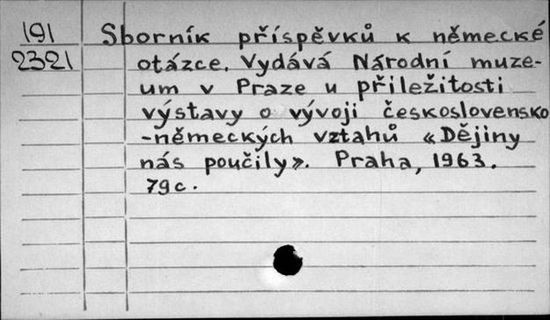 191 Sborník příspěvků k německé
2321 otázce. Vydává Národní muze-
um v Praze u přiležitosti
výstavy o vývoji československo
-německých vztahů «Dějiny
nás poučily». Praha, 1963.
79c.